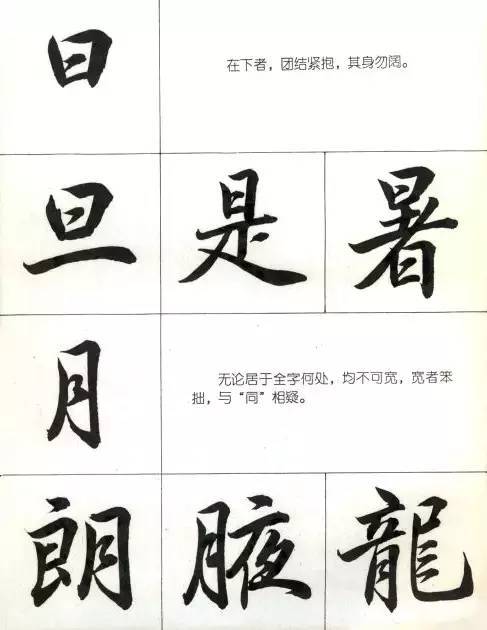 日
在下者，团结紧抱，其身勿阔。
旦是暑
月
无论居于全字何处，均不可宽，宽者笨
拙，与“同”相疑。
朗腋龍